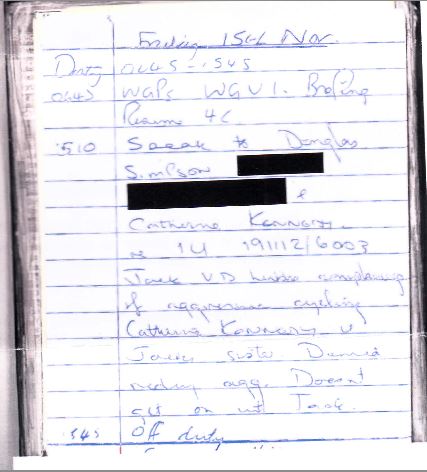 Friday 15th Nov.
Duty 0645 - 1545
0645 WGPS WGV1. Briefing
Resume 4C.
1510 Speak to Douglas
Simpson
&
Catherine Kennedy
re 1U 191112/6003
Jack V.D complaining
of aggressive cycling
Catherine Kennedy
Jack sister
agg. Doesnt
get on wt Jack.
1545 Off duty